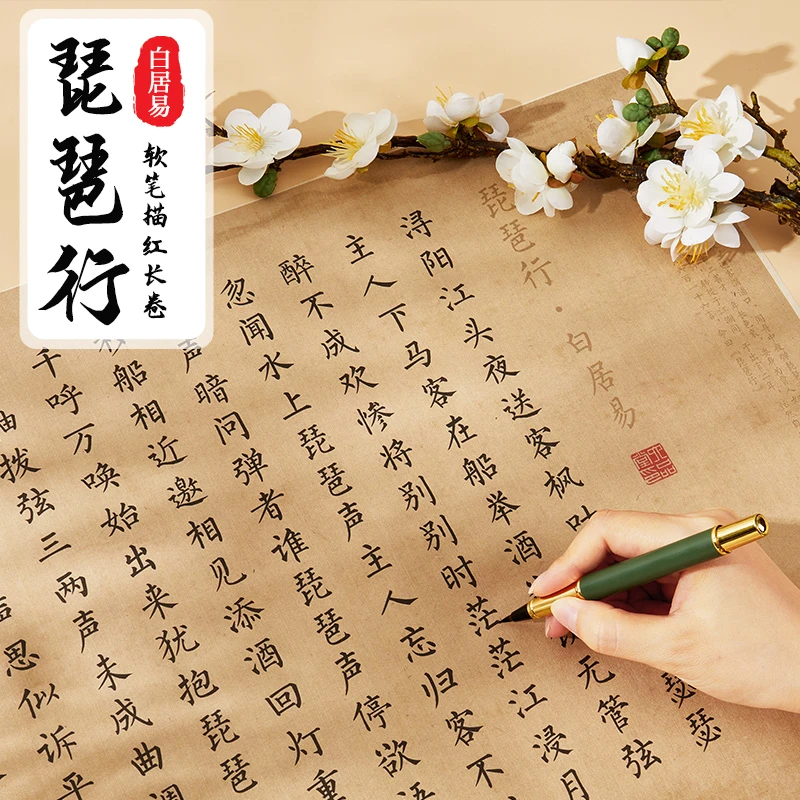 琵琶行
白居易
软笔描红长卷
琵琶行·白居易
浔阳江头夜送客枫叶瑟瑟
主人下马客在船举酒无管弦
醉不成欢惨将别别时茫茫江浸月
忽闻水上琵琶声主人忘归客不
声暗问弹者谁琵琶声停欲语
船相近邀相见添酒回灯重
千呼万唤始出来犹抱琵琶
轴拨弦三两声未成曲调
声思似诉平